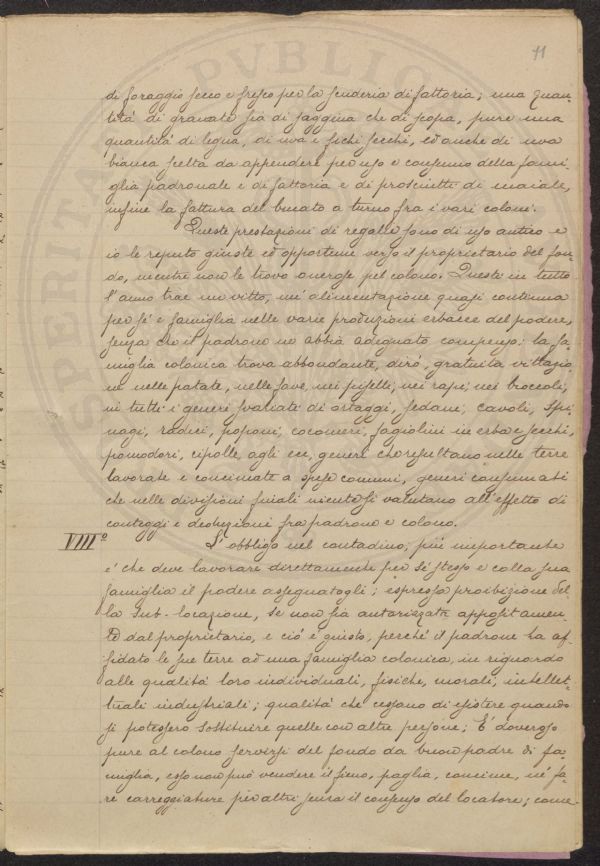 11
di foraggio secco e fresco per la scuderia di fattoria; una quan-
tità di granate sia di saggina che di scopa, pure una
quantità di legna, di uva e fichi secchi, ed anche di uva
bianca scelta da appendere per uso e consumo della fami-
glia padronale e di fattoria e di prosciutti di maiale,
infine la fattura del bucato a turno fra i vari coloni.
Queste prestazioni di regalie sono di uso antico e
io le reputo giuste ed opportune verso il proprietario del fon-
do, mentre non le trovo onerose pel colono. Questi in tutto
l'anno trae un vitto, un'alimentazione quasi continua
per sé e famiglia nelle varie produzioni erbacee del podere,
senza che il padrone ne abbia adeguato compenso: la fa-
miglia colonica trova abbondante, dirò, gratuita vittazio
ne nelle patate, nelle fave, nei piselli, nei rapi, nei broccoli,
in tutti i generi svaliati di ortaggi, sedani, cavoli, spi-
nagi, radici, poponi, cocomeri, fagiolini in erba e secchi,
pomodori, cipolle, agli ecc, generi che resultano nelle terre
lavorate e concimate a spese comuni, generi consumati
che nelle divisioni finali niente si valutano all'effetto di
conteggi e deduzioni fra padrone e colono.
VIII° L'obbligo nel contadino, più importante
è che deve lavorare direttamente per sé stesso e colla sua
famiglia il podere assegnatogli; espressa proibizione del-
la sub-locazione, se non sia autorizzata appositamen-
te dal proprietario, e ciò è giusto, perché il padrone ha af-
fidato le sue terre ad una famiglia colonica, in riguardo
alle qualità loro individuali, fisiche, morali, intellet-
tuali industriali; qualità che cessano di esistere quando
si potessero sostituire quelle con altre persone; È doveroso
pure al colono servirsi del fondo da buon padre di fa-
miglia, esso non può vendere il fieno, paglia, concime, né fa-
re carreggiature per altri senza il consenso del locatore; come-